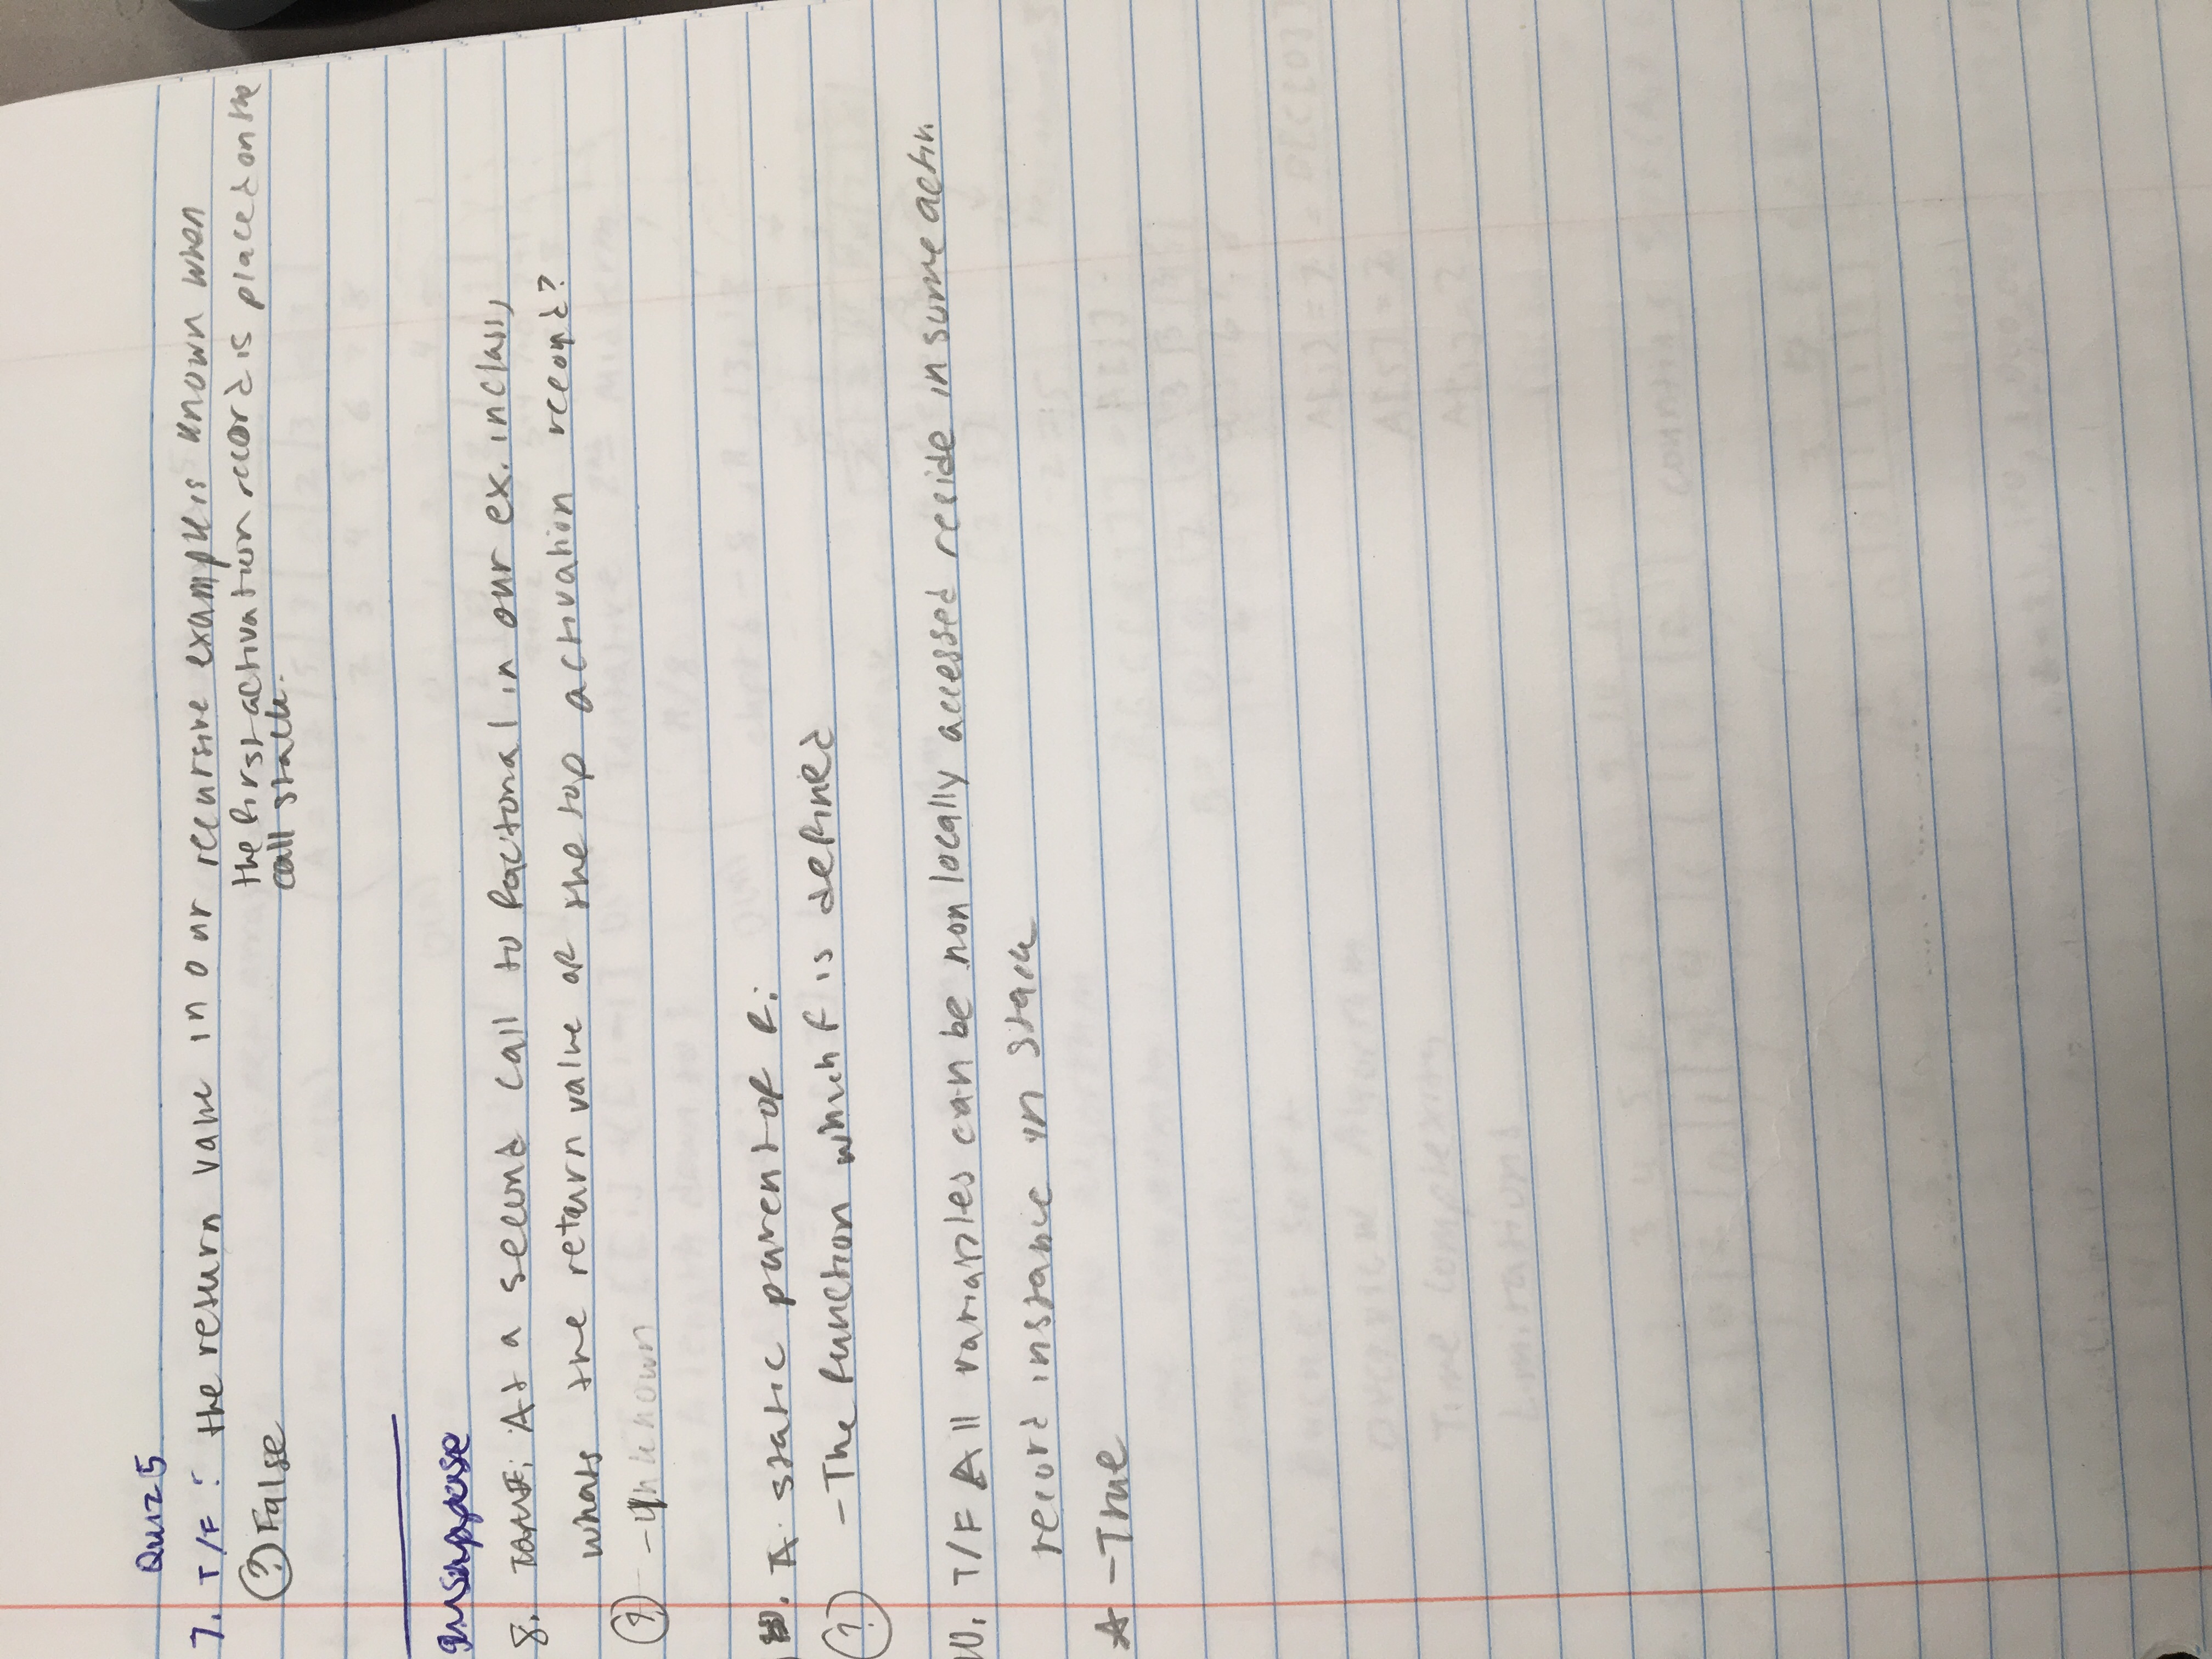 Quiz 5
7. T/F: the return value in our recursive example is known when
the first activation record is placed on the
call stack.
? False
suppose
8. At a second call to factorial in our ex. in class,
whats the return value of the top activation record?
? - unknown
A static parent of f:
? - The function which f is defined
10. T/F All variables can be non locally accessed reside in some activ.
record instance in stack
☆ - True